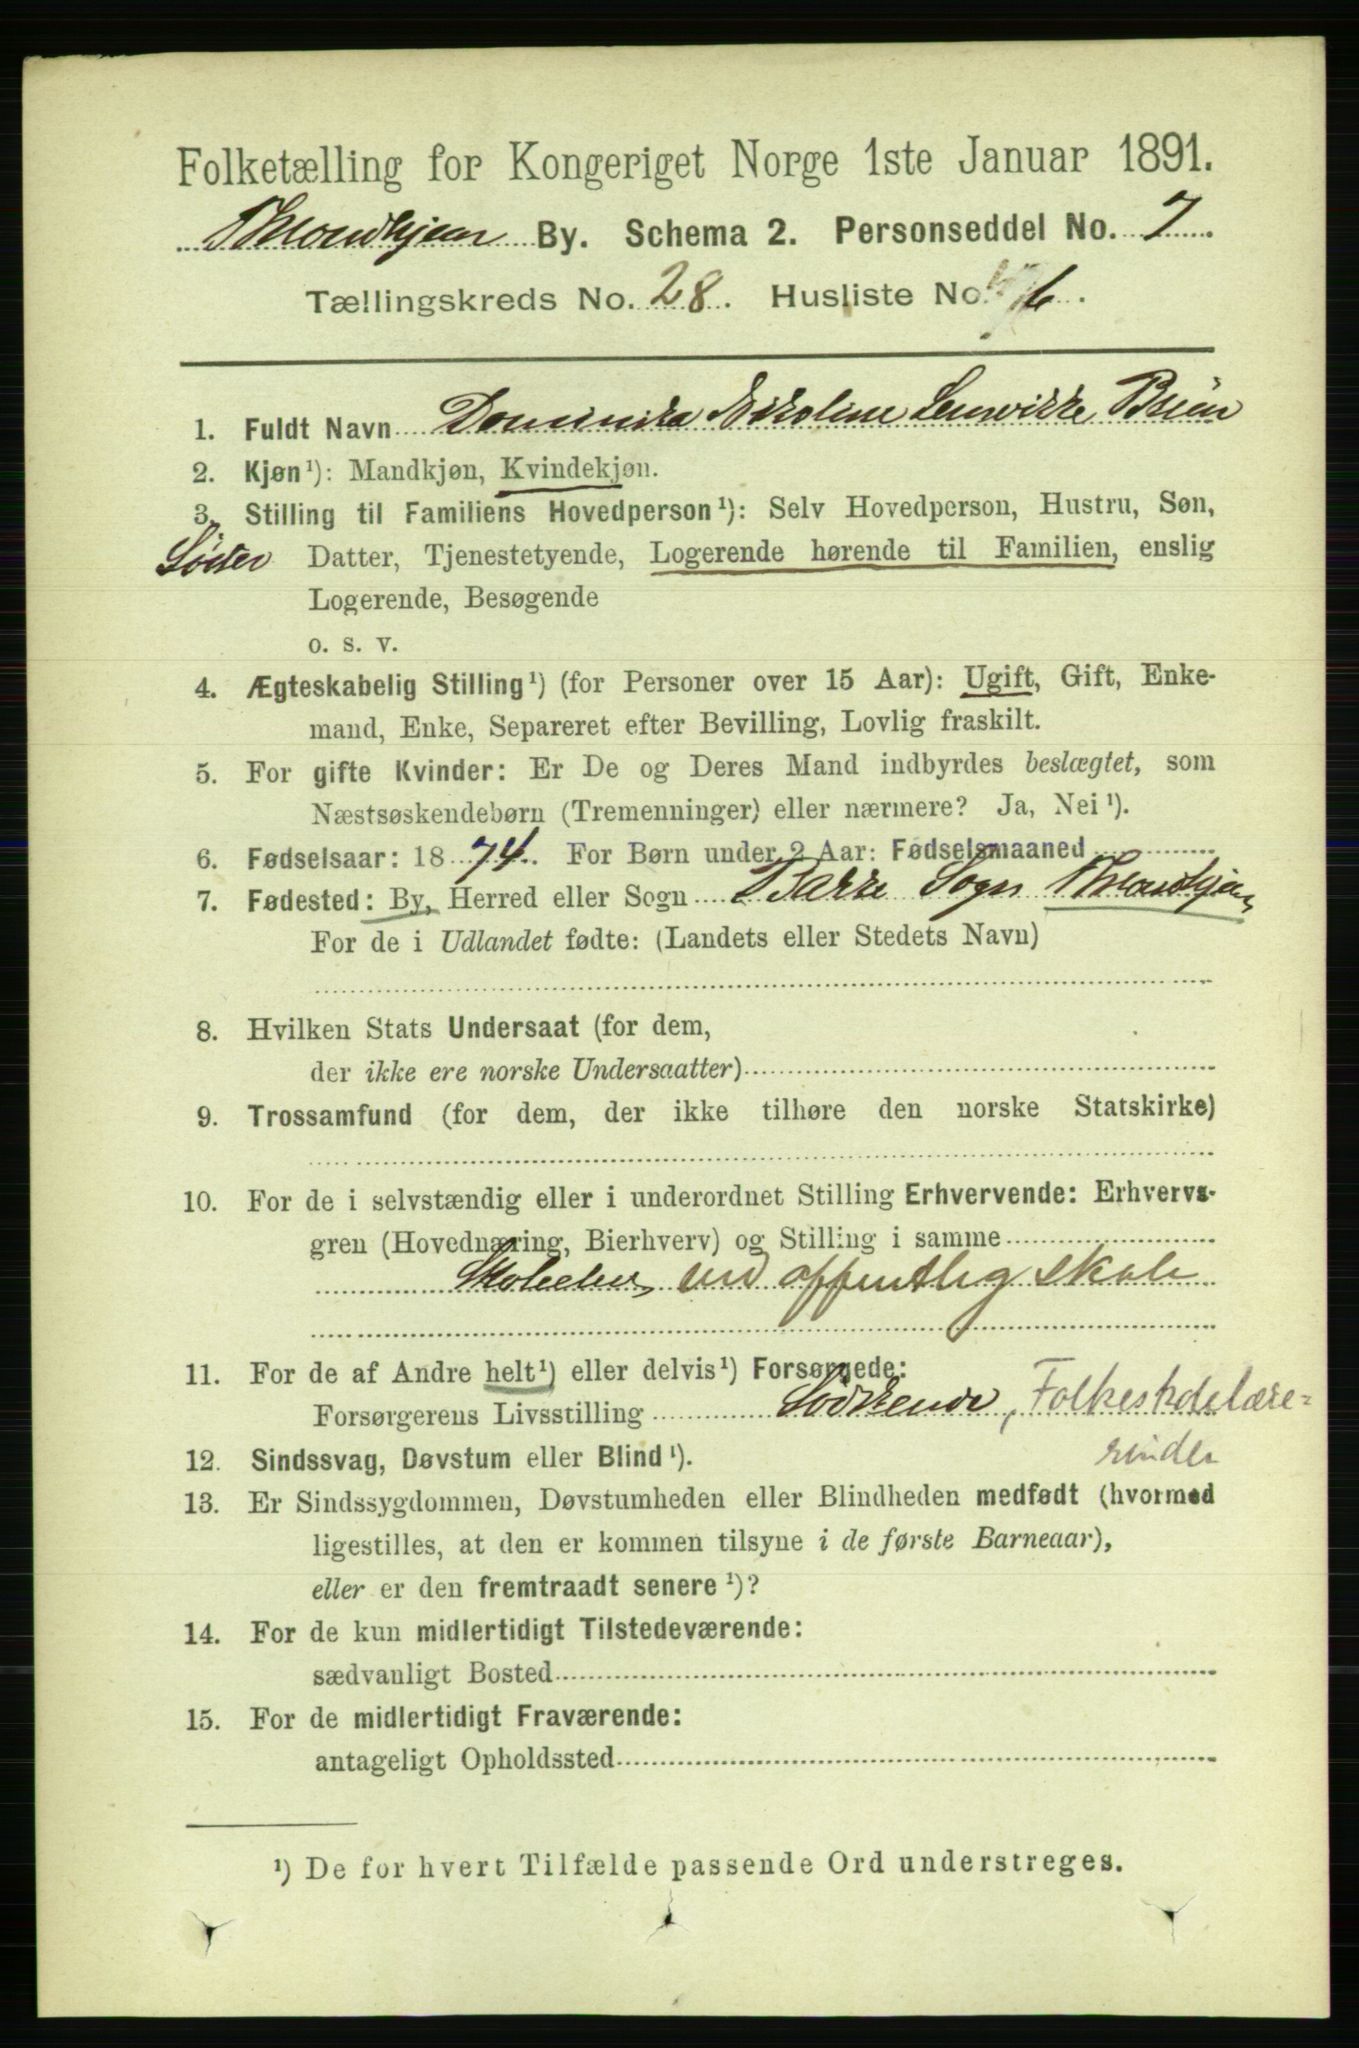 Folketælling for Kongeriget Norge 1ste Januar 1891.
Throndhjem By. Schema 2. Personseddel No. 7
Tællingskreds No. 28. Husliste No. 6.
1. Fuldt Navn Dominika Nikoline Brun
2. Kjøn¹): Mandkjøn, Kvindekjøn.
3. Stilling til Familiens Hovedperson¹): Selv Hovedperson, Hustru, Søn,
Søster Datter, Tjenestetyende, Logerende hørende til Familien, enslig
Logerende, Besøgende
o. s. v.
4. Ægteskabelig Stilling¹) (for Personer over 15 Aar): Ugift, Gift, Enke-
mand, Enke, Separeret efter Bevilling, Lovlig fraskilt.
5. For gifte Kvinder: Er De og Deres Mand indbyrdes beslægtet, som
Næstsøskendebørn (Tremenninger) eller nærmere? Ja, Nei¹).
6. Fødselsaar: 1874. For Børn under 2 Aar: Fødselsmaaned
7. Fødested: By, Herred eller Sogn Bakke Sogn Throndhjem
For de i Udlandet fødte: (Landets eller Stedets Navn)
8. Hvilken Stats Undersaat (for dem,
der ikke ere norske Undersaatter)
9. Trossamfund (for dem, der ikke tilhøre den norske Statskirke)
10. For de i selvstændig eller i underordnet Stilling Erhvervende: Erhvervs-
gren (Hovednæring, Bierhverv) og Stilling i samme
Skoleelev ved offentlig skole
11. For de af Andre helt¹) eller delvis¹) Forsørgede:
Forsørgerens Livsstilling Södskende, Folkeskolelære-
rinder
12. Sindssvag, Døvstum eller Blind¹).
13. Er Sindssygdommen, Døvstumheden eller Blindheden medfødt (hvormed
ligestilles, at den er kommen tilsyne i de første Barneaar),
eller er den fremtraadt senere¹)?
14. For de kun midlertidigt Tilstedeværende:
sædvanligt Bosted
15. For de midlertidigt Fraværende:
antageligt Opholdssted
¹) De for hvert Tilfælde passende Ord understreges.